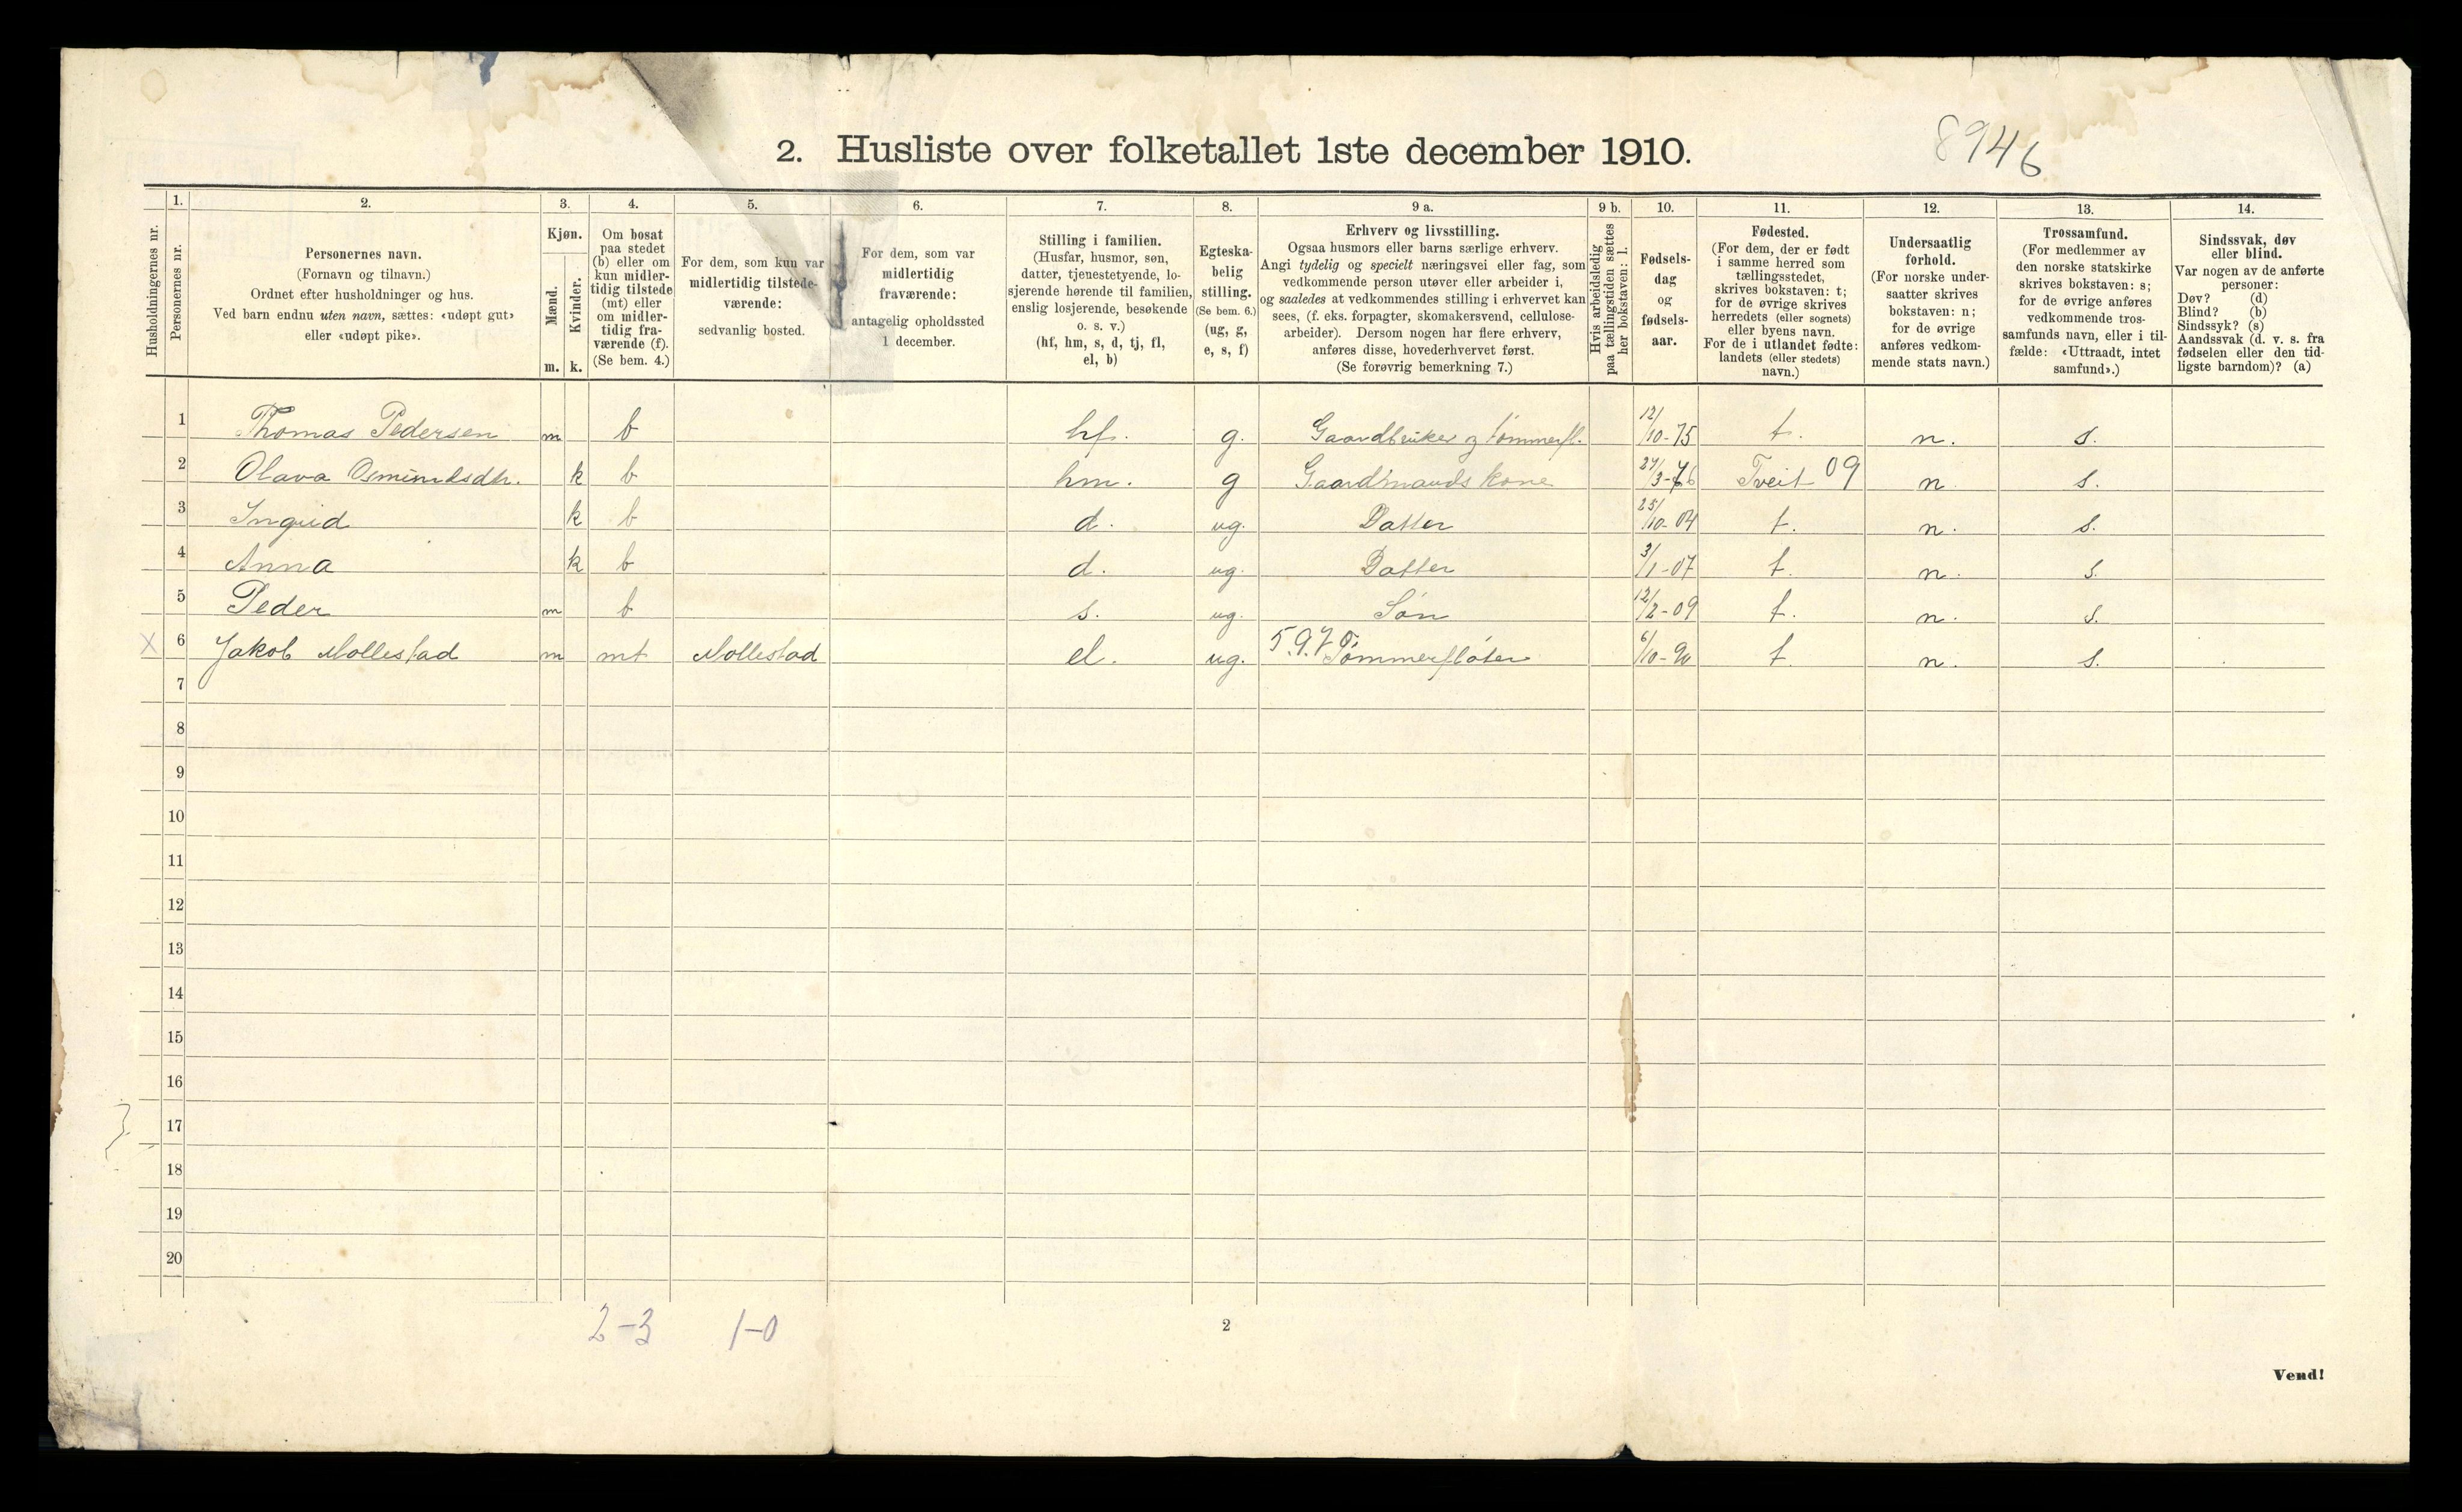 2. Husliste over folketallet 1ste december 1910.
8946
Husholdningernes nr.
1.
Personernes nr.
2.
Personernes navn.
(Fornavn og tilnavn.)
Ordnet efter husholdninger og hus.
Ved barn endnu uten navn, sættes: «udøpt gut»
eller «udøpt pike».
3.
Kjøn.
Mænd.
Kvinder.
m. k.
4.
Om bosat
paa stedet
(b) eller om
kun midler-
tidig tilstede
(mt) eller
om midler-
tidig fra-
værende (f).
(Se bem. 4.)
5.
For dem, som kun var
midlertidig tilstede-
værende:
sedvanlig bosted.
6.
For dem, som var
midlertidig
fraværende:
antagelig opholdssted
1 december.
7.
Stilling i familien.
(Husfar, husmor, søn,
datter, tjenestetyende, lo-
sjerende hørende til familien,
enslig losjerende, besøkende
o. s. v.)
(hf, hm, s, d, tj, fl,
el, b)
8.
Egteska-
belig
stilling.
(Se bem. 6.)
(ug, g,
e, s, f)
9 a.
Erhverv og livsstilling.
Ogsaa husmors eller barns særlige erhverv.
Angi tydelig og specielt næringsvei eller fag, som
vedkommende person utøver eller arbeider i,
og saaledes at vedkommendes stilling i erhvervet kan
sees, (f. eks. forpagter, skomakersvend, cellulose-
arbeider). Dersom nogen har flere erhverv,
anføres disse, hovederhvervet først.
(Se forøvrig bemerkning 7.)
9 b.
Hvis arbeidsledig
paa tællingstiden sættes
her bokstaven: l.
10.
Fødsels-
dag
og
fødsels-
aar.
11.
Fødested.
(For dem, der er født
i samme herred som
tællingsstedet,
skrives bokstaven: t;
for de øvrige skrives
herredets (eller sognets)
eller byens navn.
For de i utlandet fødte:
landets (eller stedets)
navn.)
12.
Undersaatlig
forhold.
(For norske under-
saatter skrives
bokstaven: n;
for de øvrige
anføres vedkom-
mende stats navn.)
13.
Trossamfund.
(For medlemmer av
den norske statskirke
skrives bokstaven: s;
for de øvrige anføres
vedkommende tros-
samfunds navn, eller i til-
fælde: «Uttraadt, intet
samfund».)
14.
Sindssvak, døv
eller blind.
Var nogen av de anførte
personer:
Døv? (d)
Blind? (b)
Sindssyk? (s)
Aandssvak (d. v. s. fra
fødselen eller den tid-
ligste barndom)? (a)
1 Thomas Pedersen m b hf. g. Gaardbruker og tømmerfl. 12/10-75 t. n. s.
2 Olava Osmundsdtr. k b hm. g Gaardmands kone 24/3-76 Tveit 09 n s.
3 Ingrid k b d. ug. Datter 25/10-04 t. n. s.
4 Anna k b d. ug. Datter 3/1-07 t. n. s.
5 Peder m b s. ug. Søn 12/2-09 t. n. s.
X 6 Jakob Mollestad m mt Mollestad el. ug. 5.9.7.0. Tømmerfløter 6/10-90 t. n. s.
7
8
9
10
11
12
13
14
15
16
17
18
19
20
2-3 1-0
2
Vend!